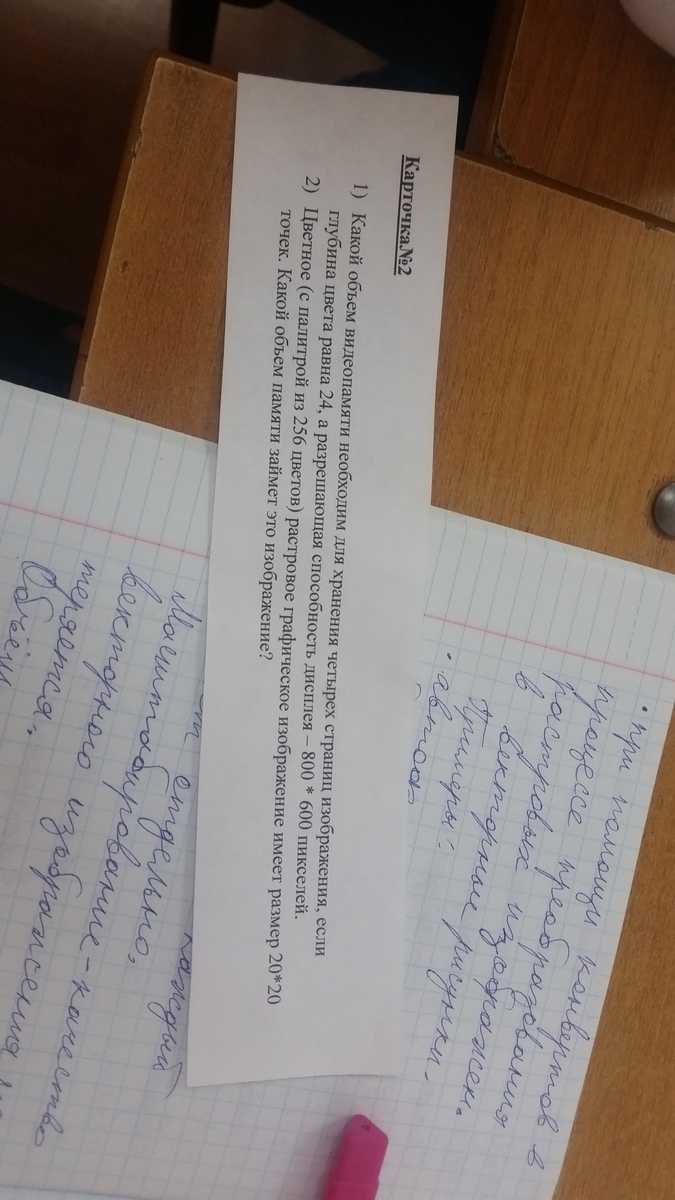 Карточка№2
1) Какой объем видеопамяти необходим для хранения четырех страниц изображения, если
глубина цвета равна 24, а разрешающая способность дисплея – 800 * 600 пикселей.
2) Цветное (с палитрой из 256 цветов) растровое графическое изображение имеет размер 20*20
точек. Какой объем памяти займет это изображение?
• при помощи конвертов в
процессе преобразования
растровых изображен.
в векторные рисунки.
Примеры:
отдельно, каждый
Масштабирование - качество
векторного изображения не
теряется.
Объём